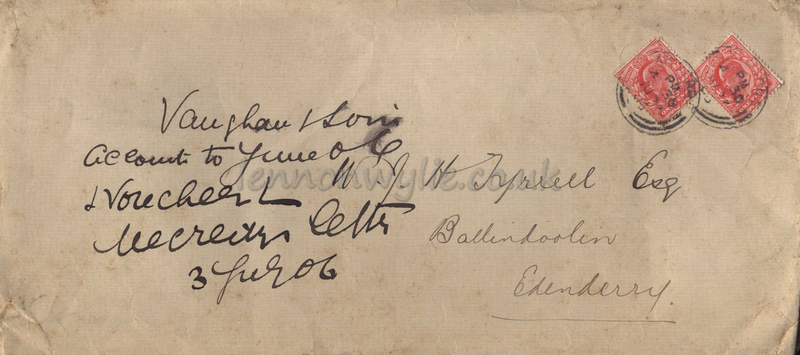 Vaughan & Son
Account to June 06
& Voucher &
Mecredys Letter
3 July 06
W J H Tyrrell Esq
Ballindoolin
Edenderry.
lennonwylie.co.uk